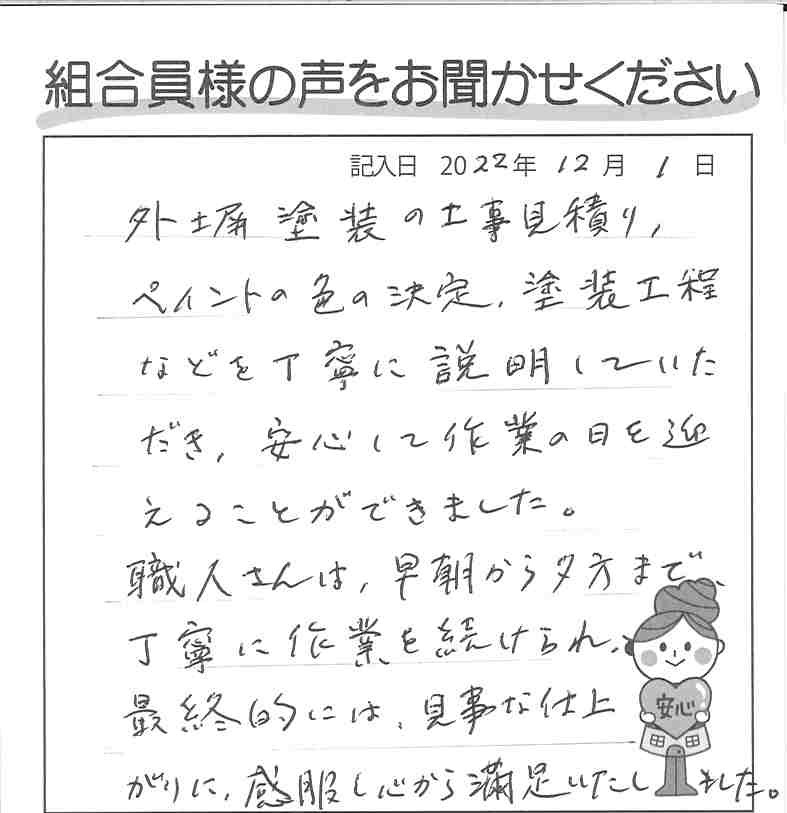 組合員様の声をお聞かせください
記入日 2022年 12月 1日
外塀塗装の工事見積り,
ペイントの色の決定,塗装工程
などを丁寧に説明していた
だき,安心して作業の日を迎
えることができました。
職人さんは,早朝から夕方まで、
丁寧に作業を続けられ、
最終的には、見事な仕上
がりに,感服し心から満足いたしました。
安心